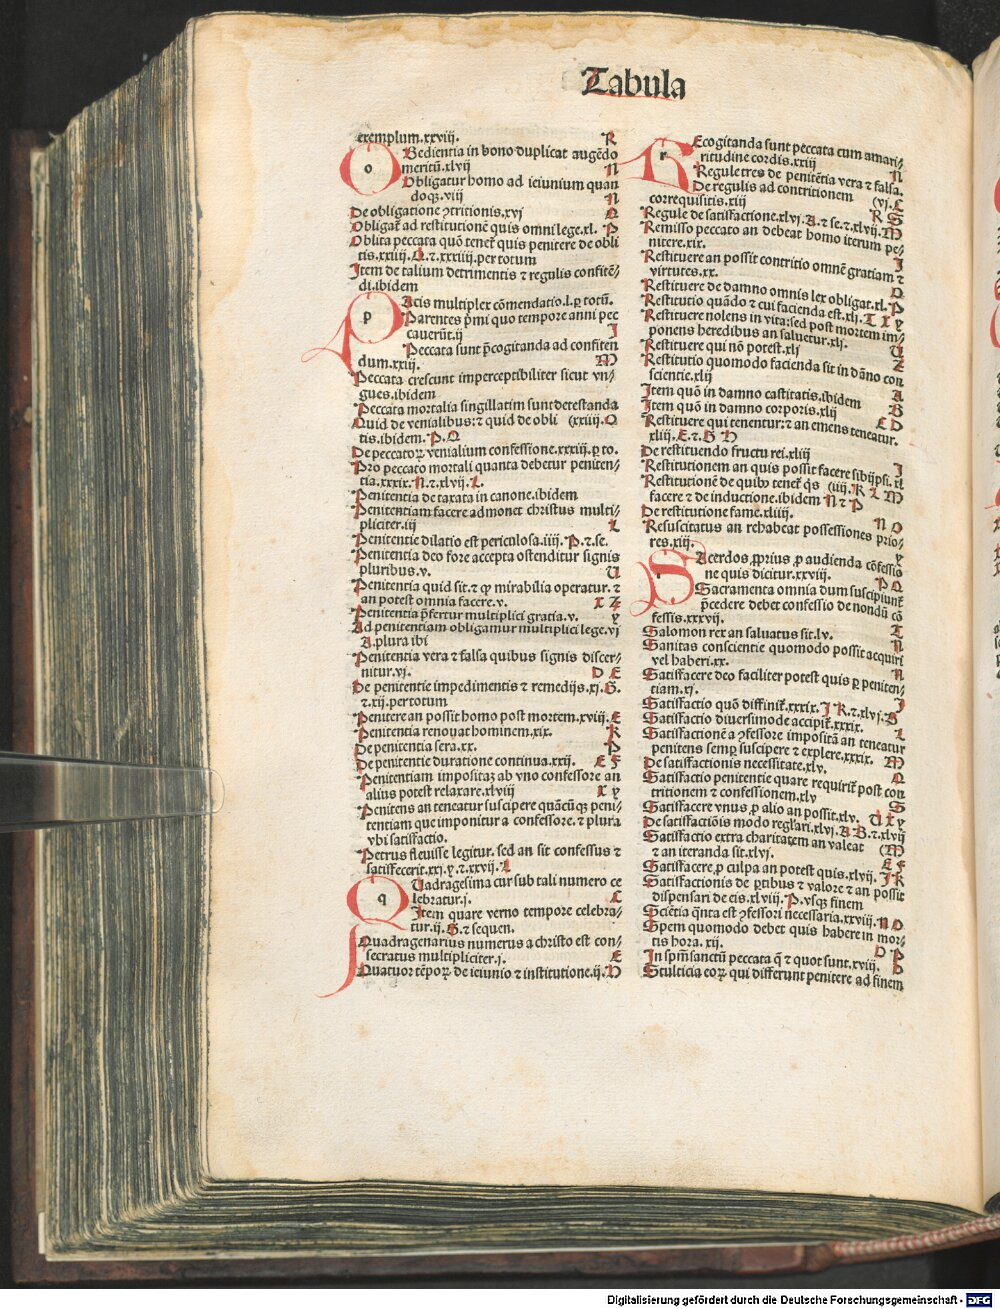 Tabula
exemplum.xxviij. R
oBedientia in bono duplicat augẽdo
meritũ.xlvij N
Obligatur homo ad ieiunium quan
doqꝫ.viij N
De obligatione ↄtritionis.xvj Q
Obligat᷑ ad restitutionẽ quis omni lege.xl. P
Oblita peccata quõ tenet᷑ quis penitere de obli
tis.xxiiij. Q.⁊.xxxiiij.per totum
Item de talium detrimentis ⁊ regulis confitẽ⸗
di.ibidem
pAcis multiplex cõmendatio.l.ꝑ totũ.
Parentes p̃mi quo tempore anni pec
cauerũt.ij I
Peccata sunt p̃cogitanda ad confiten
dum.xxiij. M
Peccata crescunt imperceptibiliter sicut vn⸗
gues.ibidem
Peccata mortalia singillatim sunt detestanda
Quid de venialibus:⁊ quid de obli (xxiiij.O
tis.ibidem. P.Q
De peccatoꝝ venialium confessione.xxxiij.ꝑ to.
Pro peccato mortali quanta debetur peniten⸗
tia.xxxix.N.⁊.xlvij.L.
Penitentia de taxata in canone.ibidem
Penitentiam facere admonet christus multi⸗
pliciter.iij L
Penitentie dilatio est periculosa.iiij. P.⁊.se.
Penitentia deo fore accepta ostenditur signis
pluribus.v. U
Penitentia quid sit.⁊ ꝙ mirabilia operatur.⁊
an potest omnia facere.v. X Z
Penitentia p̃fertur multiplici gratia.v. y
Ad penitentiam obligamur multiplici lege.vj
A.plura ibi
Penitentia vera ⁊ falsa quibus signis discer⸗
nitur.vj. D E
De penitentie impedimentis ⁊ remedijs.xj.G.
⁊.xij.per totum
Penitere an possit homo post mortem.xviij.E
Penitentia renouat hominem.xix. K
De penitentia sera.xx. P
De penitentie duratione continua.xxij. E F
Penitentiam impositaꝫ ab vno confessore an
alius potest relaxare.xlviij X y
Penitens an teneatur suscipere quãcũqꝫ peni⸗
tentiam que imponitur a confessore.⁊ plura
vbi satisfactio.
Petrus fleuisse legitur. sed an sit confessus ⁊
satisfecerit.xxj.y.⁊.xxvij.L
qUadragesima cur sub tali numero ce
lebratur.j. C
Item quare verno tempore celebra⸗
tur.ij.G.⁊ sequen.
Quadragenarius numerus a christo est con⸗
secratus multipliciter.j. E
Quatuor tẽpoꝝ de ieiunio ⁊ institutione.ij.H
rEcogitanda sunt peccata cum amari⸗
ritudine cordis.xxiij N
Regule tres de penitẽtia vera ⁊ falsa.
De regulis ad contritionem (vj.C
correquisitis.xiij R S
Regule de satisfactione.xlvj.A.⁊ se.⁊.xlvij.M
Remisso peccato an debeat homo iterum pe⸗
nitere.xix. I
Restituere an possit contritio omnẽ gratiam ⁊
virtutes.xx. O
Restituere de damno omnis lex obligat.xl.P
Restitutio quãdo ⁊ cui facienda est.xlj.T X y
Restituere nolens in vita:sed post mortem im⸗
ponens heredibus an saluetur.xlj.
Restituere qui nõ potest.xlj U
Restitutio quomodo facienda sit in dãno con Z
scientie.xlij
Item quõ in damno castitatis.ibidem A
Item quõ in damno corporis.xlij B
Restituere qui tenentur:⁊ an emens teneatur. C D
xliij.E.⁊.G H
De restituendo fructu rei.xliij
Restitutionem an quis possit facere sibijpsi.xl I
Restitutionẽ de quibꝰ tenet᷑ q̃s (iij.K L M
facere ⁊ de inductione.ibidem N ⁊ P
De restitutione fame.xliiij.
Resuscitatus an rehabeat possessiones prio⸗ N O
res.xiij. y
sAcerdos ꝓprius ꝓ audienda cõfessio
ne quis dicitur.xxviij. P Q
Sacramenta omnia dum suscipiunt᷑
p̃cedere debet confessio de nondũ cõ
fessis.xxxvij.
Salomon rex an saluatus sit.lv. T
Sanitas conscientie quomodo possit acquiri N
vel haberi.xx.
Satisfacere deo faciliter potest quis ꝑ peniten⸗ N
tiam.xj.
Satisfactio quõ diffinit᷑.xxxix.I K.⁊.xlvj.B I
Satisfactio diuersimode accipit᷑.xxxix.
Satisfactionẽ a ↄfessore impositã an teneatur L
penitens semꝑ suscipere ⁊ explere.xxxix. M
De satisfactionis necessitate.xlv.
Satisfactio penitentie quare requirit᷑ post con Q
tritionem ⁊ confessionem.xlv S
Satisfacere vnus ꝓ alio an possit.xlv. U X y
De satisfactiõis modo regl̃ari.xlvj.A B.⁊.xlvij
Satisfactio extra charitatem an valeat (M
⁊ an iteranda sit.xlvj. E F
Satisfacere ꝓ culpa an potest quis.xlvij. I K
Satisfactionis de ꝑtibus ⁊ valore ⁊ an possit
dispensari de eis.xlviij.P.vsqꝫ finem
Sciẽtia q̃nta est ↄfessori necessaria.xxviij.N O
Spem quomodo debet quis habere in mor⸗
tis hora.xij. D P
In spm̃ sanctũ peccata q̃ ⁊ quot sunt.xviij. D
Stulticia eoꝝ qui differunt penitere ad finem
Digitalisierung gefördert durch die Deutsche Forschungsgemeinschaft - DFG